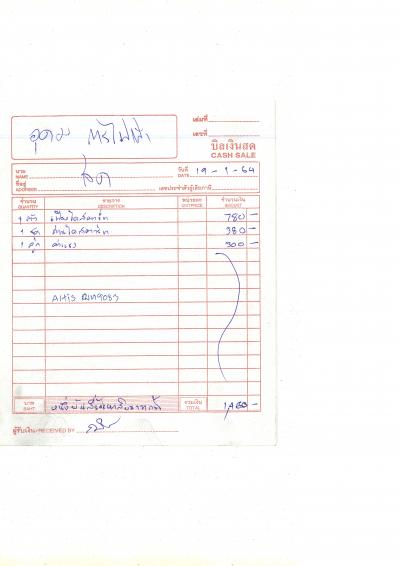 เล่มที่
อุดม การไฟฟ้า
เลขที่
บิลเงินสด
CASH SALE
นาม
NAME
สด
วันที่
DATE 19 - 1 - 64
ที่อยู่
ADDRESS
เลขประจำตัวผู้เสียภาษี
จำนวน รายการ หน่วยละ จำนวนเงิน
QUANTITY DESCRIPTION UNIT PRICE AMOUNT
1 ตัว เฟืองไดสตาร์ท 780 -
1 ชุด ถ่านไดสตาร์ท 380 -
1 ค่าแรง 300 -
9083
บาท รวมเงิน
BAHT หนึ่งพันสี่ร้อยหกสิบบาทถ้วน TOTAL 1,460 -
ผู้รับเงิน/RECEIVED BY